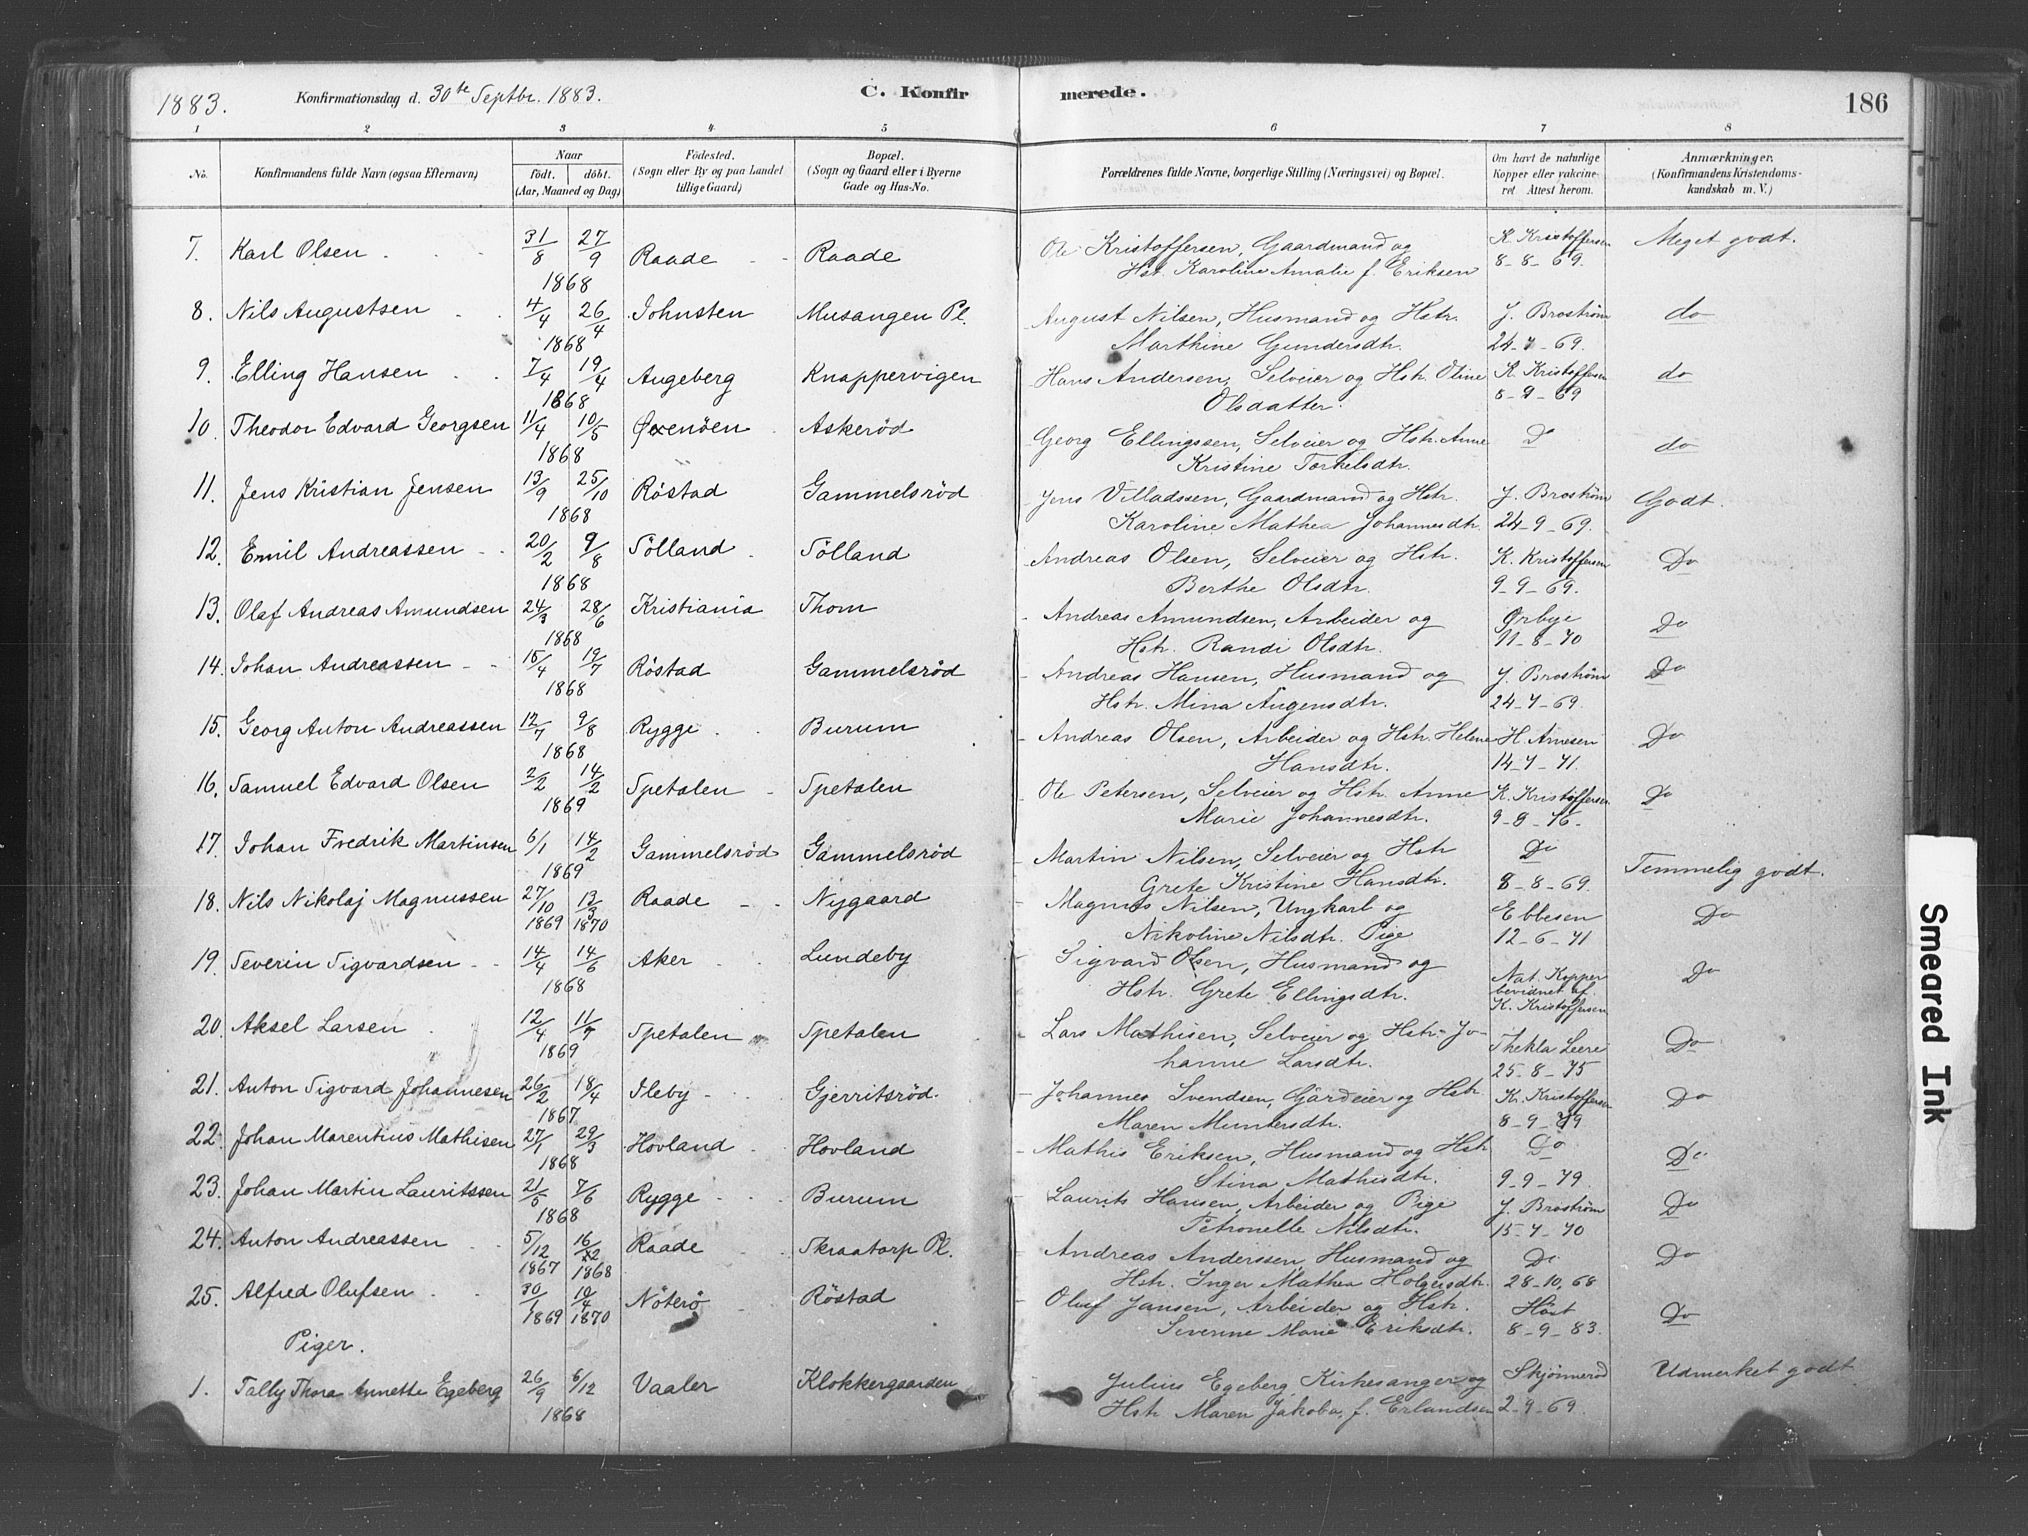 1883. Konfirmationsdag d. 30te Septbr. 1883. C. Konfirmerede. 186
1 2 3 4 5 6 7 8
No. Konfirmandens fulde Navn (ogsaa Efternavn) Naar födt. döbt. (Aar, Maaned og Dag) Födested. (Sogn eller By og paa Landet tillige Gaard) Bopæl. (Sogn og Gaard eller i Byerne Gade og Hus-No.) Forældrenes fulde Navne, borgerlige Stilling (Næringsvei) og Bopæl. Om havt de naturlige Kopper eller vakcineret. Attest herom. Anmærkninger. (Konfirmandens Kristendomskundskab m. V.)
7. Karl Olsen 31/8 27/9 1868 Raade Raade Ole Kristoffersen, Gaardmand og K. Kristoffersen Meget godt.
Hst. Karoline Amalie f. Eriksen 8-8-69.
8. Nils Augustsen 4/4 26/4 1868 Johnsten Musangen Pl. August Nilsen, Husmand og Hstr. J. Broström do
Marthine Gundersdtr. 24-7-69.
9. Elling Hansen 7/4 19/4 1868 Augeberg Knappervigen Hans Andersen, Selveier og Hstr. Oline K. Kristoffersen do
Olsdatter. 8-9-69
10. Theodor Edvard Georgsen 11/4 10/5 1868 Øxenöen Askeröd Georg Ellingssen, Selveier og Hstr. Anne Do do
Kristine Torkelsdtr.
11. Jens Kristian Jensen 13/9 25/10 1868 Röstad Gammelsröd Jens Villadssen, Gaardmand og Hstr. J. Broström Godt.
Karoline Mathea Johannesdtr. 24-9-69.
12. Emil Andreassen 20/2 9/8 1868 Sölland Sölland Andreas Olsen, Selveier og Hstr. K. Kristoffersen Do
Berthe Olsdtr. 9-9-69.
13. Olaf Andreas Amundsen 24/3 28/6 1868 Kristiania Thom Andreas Amundsen, Arbeider og Ørbye Do
Hstr. Randi Olsdtr. 11-8-70
14. Johan Andreassen 15/4 19/7 1868 Röstad Gammelsröd Andreas Hansen, Husmand og J. Broström Do
Hstr. Mina Augensdtr. 24-7-69.
15. Georg Anton Andreassen 12/7 9/8 1868 Rygge Burum Andreas Olsen, Arbeider og Hstr. Helene H. Arnesen Do
Hansdtr. 14-7-71.
16. Samuel Edvard Olsen 2/2 14/2 1869 Spetalen Spetalen Ole Petersen, Selveier og Hstr. Anne K. Kristoffersen Do
Marie Johannesdtr. 9-8-76.
17. Johan Fredrik Martinsen 6/1 14/2 1869 Gammelsröd Gammelsröd Martin Nilsen, Selveier og Hstr Do Temmelig godt.
Grete Kristine Hansdtr. 8-8-69.
18. Nils Nikolaj Magnussen 27/10 1869 13/3 1870 Raade Nygaard Magnus Nilsen, Ungkarl og Ebbesen Do
Nikoline Nilsdtr. Pige 12-6-71
19. Severin Sigvardsen 14/4 14/6 1868 Aker Lundeby Sigvard Olsen, Husmand og Nat. Kopper Do
Hstr. Grete Ellingsdtr. bevidnet af K. Kristoffersen
20. Aksel Larsen 12/4 11/7 1869 Spetalen Spetalen Lars Mathisen, Selveier og Hstr. Jo- Thekla Leere Do
hanne Larsdtr. 25-8-75
21. Anton Sigvard Johannesen 26/2 18/4 1867 Ileby Gjerritsröd. Johannes Svendsen, Gårdeier og Hstr. K. Kristoffersen Do
Maren Muntersdtr. 8-9-79
22. Johan Marentius Mathisen 27/1 29/3 1868 Hovland Hovland Mathis Eriksen, Husmand og Hstr Do Do
Stina Mathisdtr. 9-9-79.
23. Johan Martin Lauritssen 21/5 7/6 1868 Rygge Burum Laurits Hansen, Arbeider og Pige J. Broström Do
Petronelle Nilsdtr. 15-7-70
24. Anton Andreassen 5/12 1867 16/22 1868 Raade Skraatorp Pl. Andreas Anderssen, Husmand og Do Do
Hstr. Inger Mathea Holgersdtr. 28-10-68
25. Alfred Olufsen 30/1 1869 10/4 1870 Nöterö Röstad Oluf Jansen, Arbeider og Hstr. Höst Do
Severine Marie Eriksdtr. 8-9-83.
Piger.
1. Tally Thora Annette Egeberg 26/9 6/12 1868 Vaaler Klokkergaarden Julius Egeberg, Kirkesanger og Skjönneröd Udmerket godt
Hstr Maren Jakoba, f. Erlandsen 2-9-69.
Smeared Ink